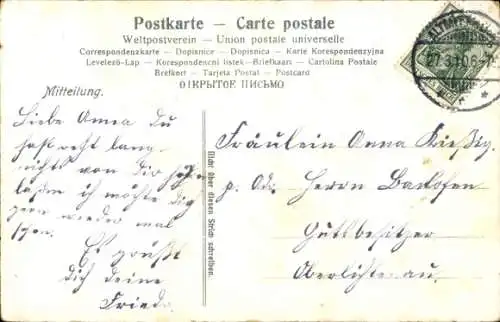 Postkarte – Carte postale
Weltpostverein – Union postale universelle
Correspondenzkarte – Dopisnice – Dopisnica – Karte Korespondenzyjna
Levelező-Lap – Korespondenční lístek – Briefkaart – Cartolina Postale
Brefkort – Tarjeta Postal – Postcard
ОТКРЫТОЕ ПИСЬМО
27.3.10.6-7
Mitteilung.
Liebe Anna Du
hast recht lang
nichts von Dir hören
laßen ich möchte Dig
gern wieder mal
sehen.
Es grüßt
dich deine
Frieda
Nicht über diesen Strich schreiben.
Fräulein Anna Kießig
p. Ad. Herrn Bachofen
Guttsbesitzer
Oberlistenau.